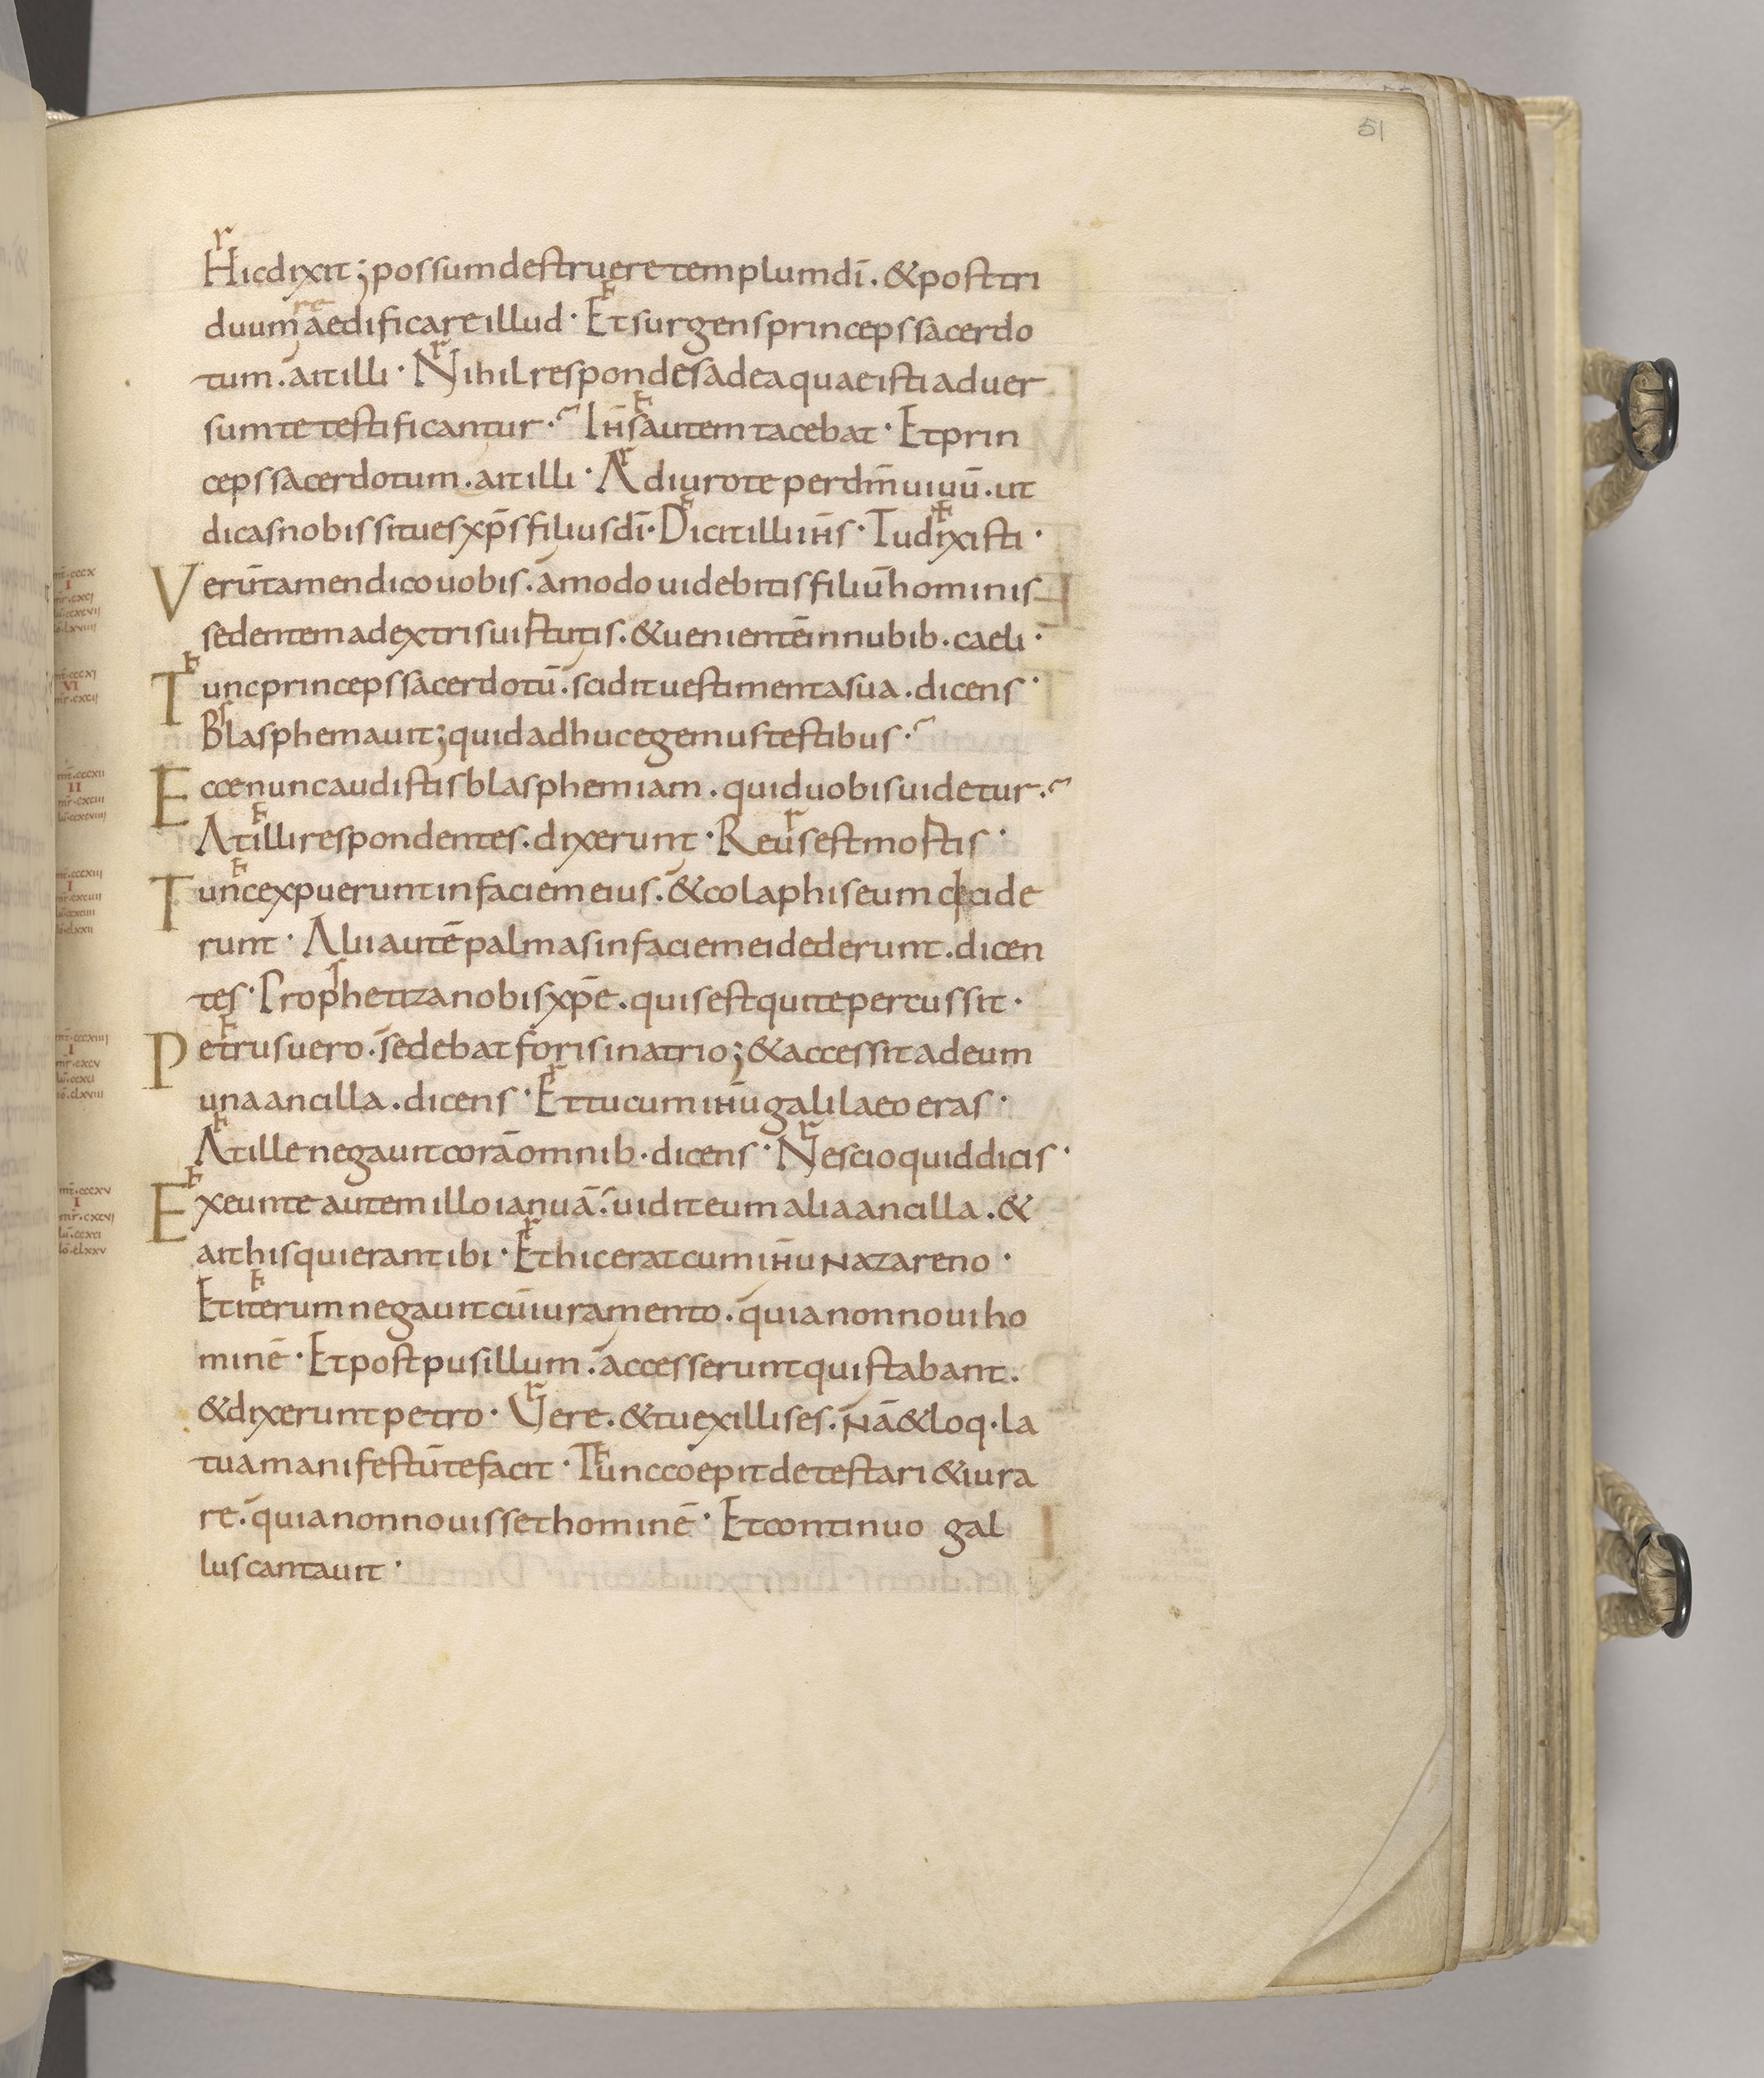 51
Hic dixit; possum destruere templum dī. & post tri
duum aedificare illud. Et surgens princeps sacerdo
tum. ait illi. Nihil respondes ad ea quae isti aduer
sum te testificantur. Ihs̄ autem tacebat. Et prin
ceps sacerdotum. ait illi. Adiuro te per dm̄ uiuū. ut
dicas nobis si tu es xp̄s filius dī. Dicit illi ihs̄. Tu dixisti.
Verūtamen dico uobis. amodo uidebitis filiū hominis
sedentem a dextris uirtutis. & uenientē in nubib. caeli.
Tunc princeps sacerdotū. scidit uestimenta sua. dicens
Blasphemauit; quid adhuc egemus testibus.
Ecce nunc audistis blasphemiam. quid uobis uidetur.
At illi respondentes. dixerunt. Reus est mortis.
Tunc expuerunt in faciem eius. & colaphis eum cecide
runt. Alii autē palmas in faciem ei dederunt. dicen
tes. Prophetiza nobis xp̄e. quis est qui te percussit.
Petrus uero. sedebat foris in atrio; & accessit ad eum
una ancilla. dicens. Et tu cum ihū galilaeo eras.
At ille negauit corā omnib. dicens. Nescio quid dicis.
Exeunte autem illo ianuā. uidit eum alia ancilla. &
ait his qui erant ibi. Et hic erat cum ihū nazareno.
Et iterum negauit cū iuramento. quia non noui ho
minē. Et post pusillum. accesserunt qui stabant.
& dixerunt petro. Vere. & tu ex illis es. nā & loq. la
tua manifestū te facit. Tunc coepit detestari & iura
re. quia non nouisset hominē. Et continuo gal
lus cantauit.